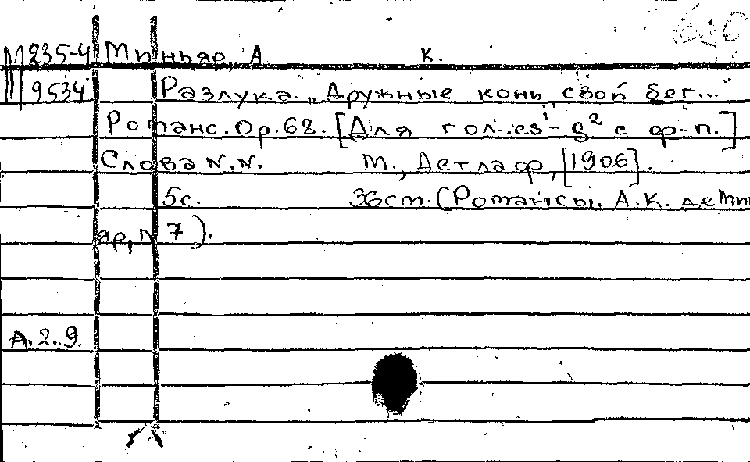 М 235-4 Миньяр А. К.
9534 Разлука. „Дружные кони, свой бег..."
Романс. Ор. 68. [Для гол. es¹-g² с ф-п.]
Слова N.N. М., Детлаф, [1906].
5с. 36см. (Романсы А.К. де Мин
яр, N 7).
А.2.9